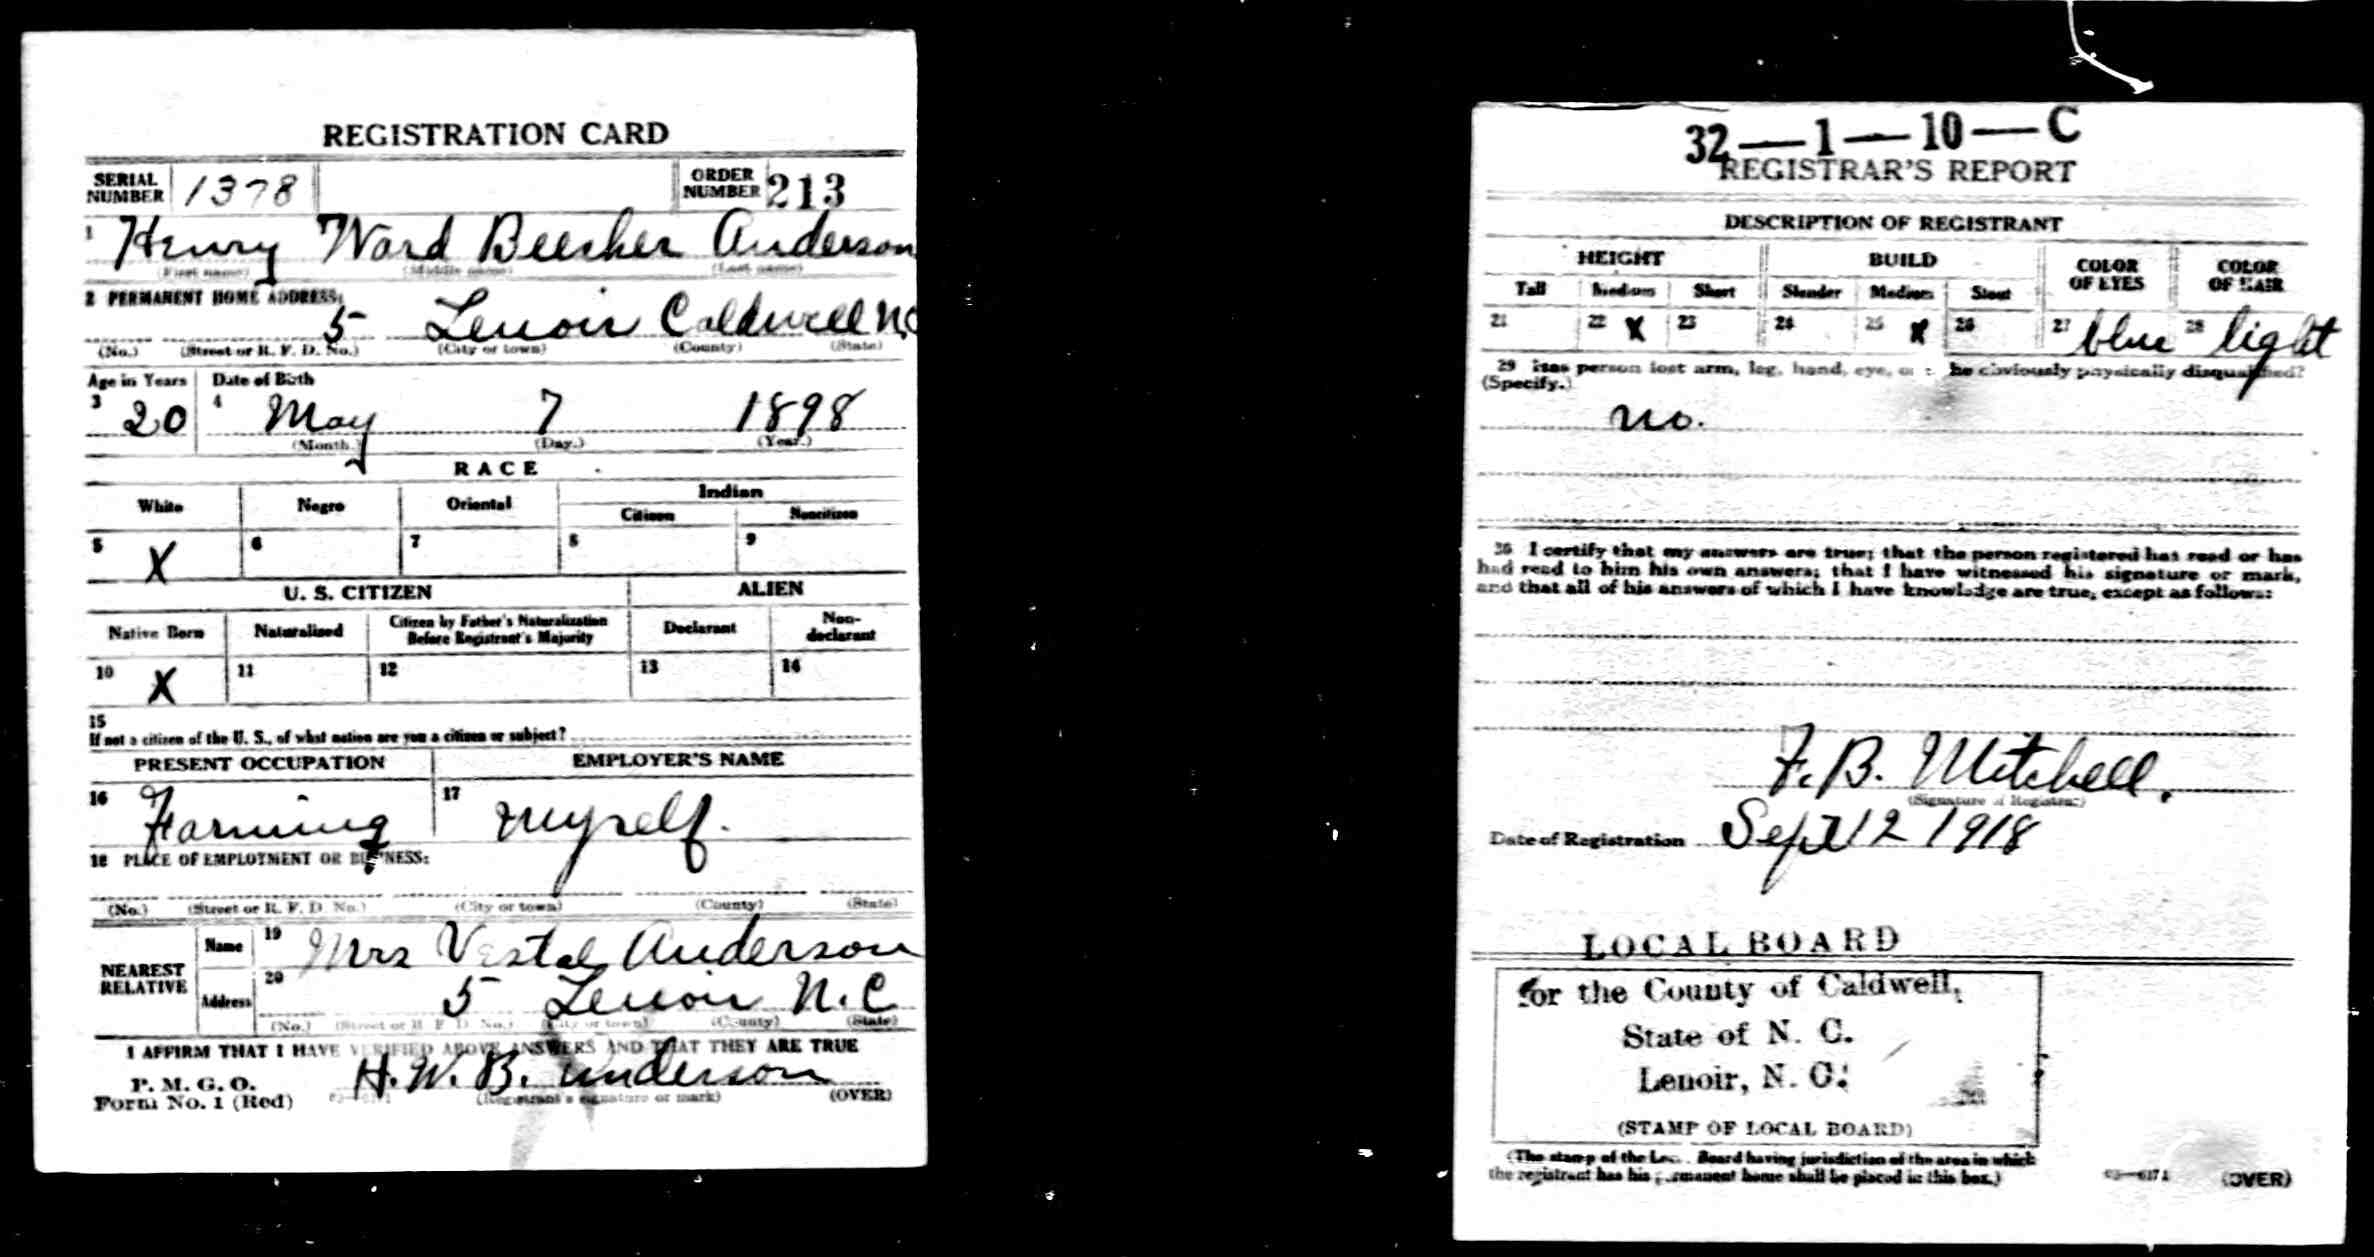 REGISTRATION CARD
SERIAL NUMBER 1378 ORDER NUMBER 213
1 Henry Ward Beecher Anderson
(First name) (Middle name) (Last name)
2 PERMANENT HOME ADDRESS:
5 Lenoir Caldwell N.C
(No.) (Street or R. F. D. No.) (City or town) (County) (State)
Age in Years Date of Birth
3 20 4 May 7 1898
(Month.) (Day.) (Year.)
RACE
White Negro Oriental Indian
Citizen Noncitizen
5 X 6 7 8 9
U. S. CITIZEN ALIEN
Native Born Naturalized Citizen by Father's Naturalization Before Registrant's Majority Declarant Non-declarant
10 X 11 12 13 14
15
If not a citizen of the U. S., of what nation are you a citizen or subject?
PRESENT OCCUPATION EMPLOYER'S NAME
16 Farming 17 myself.
18 PLACE OF EMPLOYMENT OR BUSINESS:
(No.) (Street or R. F. D. No.) (City or town) (County) (State)
NEAREST RELATIVE Name 19 Mrs Vestal Anderson
Address 20 5 Lenoir N.C
(No.) (Street or R. F. D. No.) (City or town) (County) (State)
I AFFIRM THAT I HAVE VERIFIED ABOVE ANSWERS AND THAT THEY ARE TRUE
P. M. G. O.
Form No. 1 (Red) H. W. B. Anderson
(Registrant's signature or mark) (OVER)
32—1—10—C
REGISTRAR'S REPORT
DESCRIPTION OF REGISTRANT
HEIGHT BUILD COLOR OF EYES COLOR OF HAIR
Tall Medium Short Slender Medium Stout
21 22 X 23 24 25 X 26 27 blue 28 light
29 Has person lost arm, leg, hand, eye, or is he obviously physically disqualified?
(Specify.)
no.
30 I certify that my answers are true; that the person registered has read or has
had read to him his own answers; that I have witnessed his signature or mark,
and that all of his answers of which I have knowledge are true, except as follows:
F. B. Mitchell.
(Signature of Registrar)
Date of Registration Sept 12 1918
LOCAL BOARD
for the County of Caldwell,
State of N. C.
Lenoir, N. C.
(STAMP OF LOCAL BOARD)
(The stamp of the Local Board having jurisdiction of the area in which
the registrant has his permanent home shall be placed in this box.)
03—6171 (OVER)